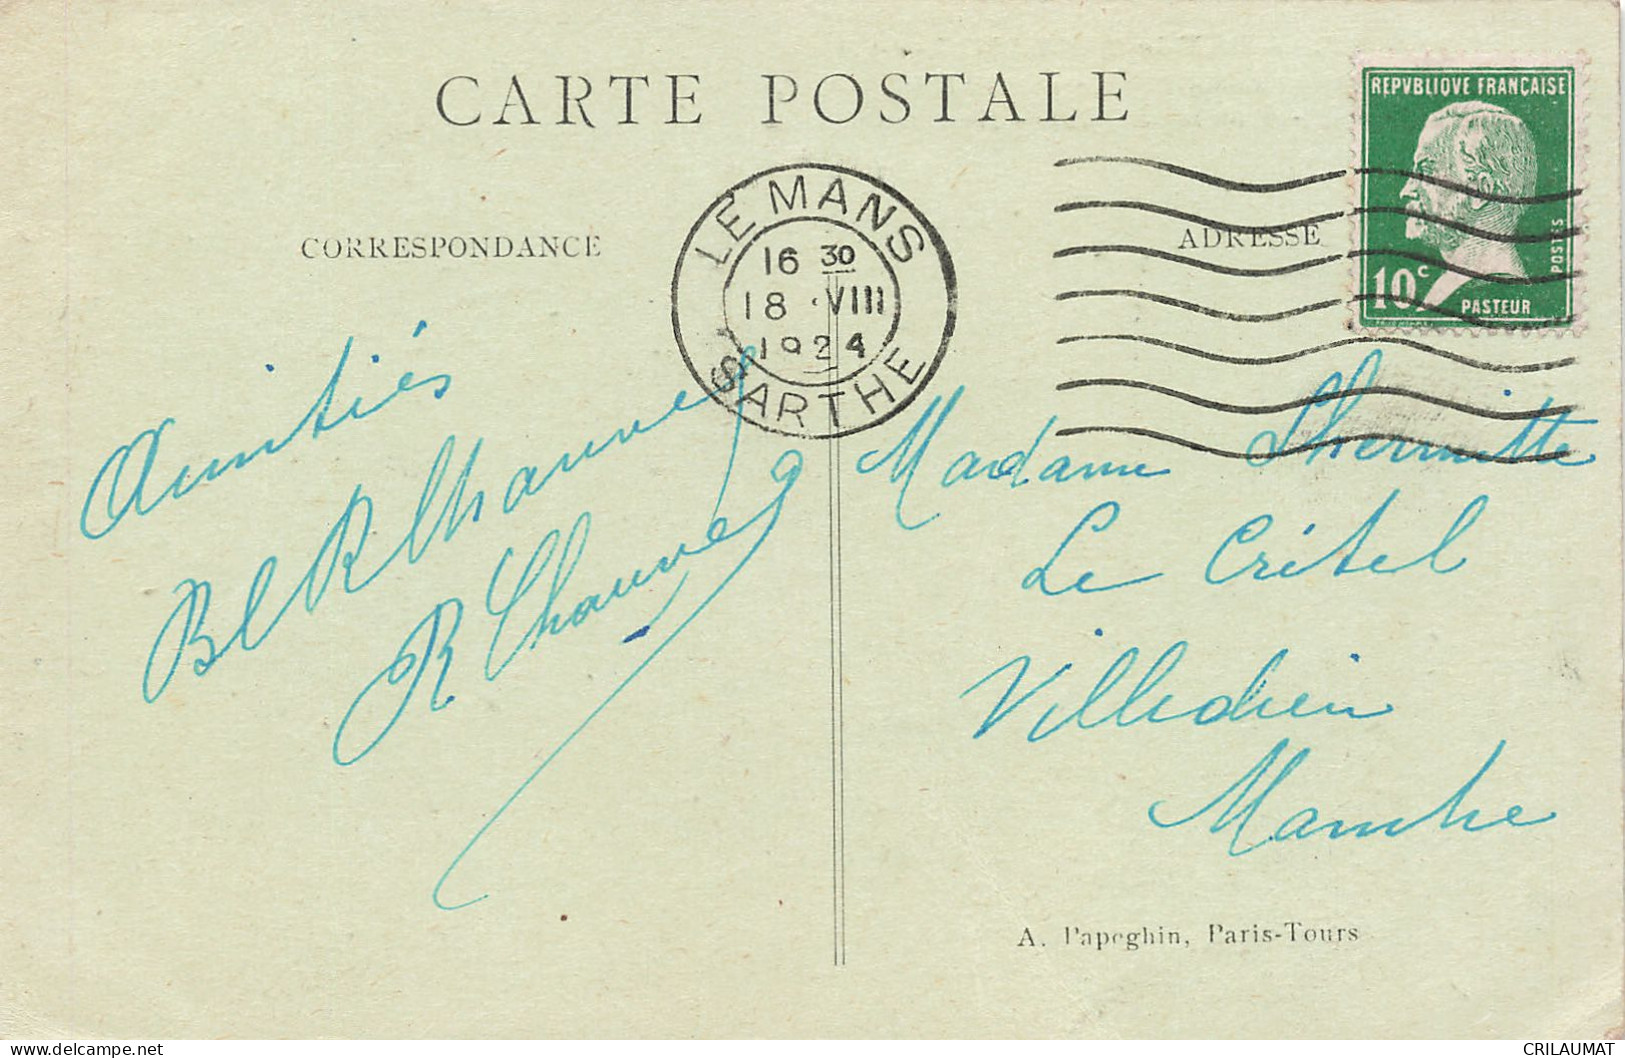 CARTE POSTALE
CORRESPONDANCE
ADRESSE
REPVBLIQVE FRANÇAISE
POSTES
10c
PASTEUR
LE MANS
16 30
18 VIII
1924
SARTHE
Amitiés
R Chauvel
Madame Lhermitte
Le Critel
Villedieu
Manche
A. Papeghin, Paris-Tours
delcampe.net
CRILAUMAT